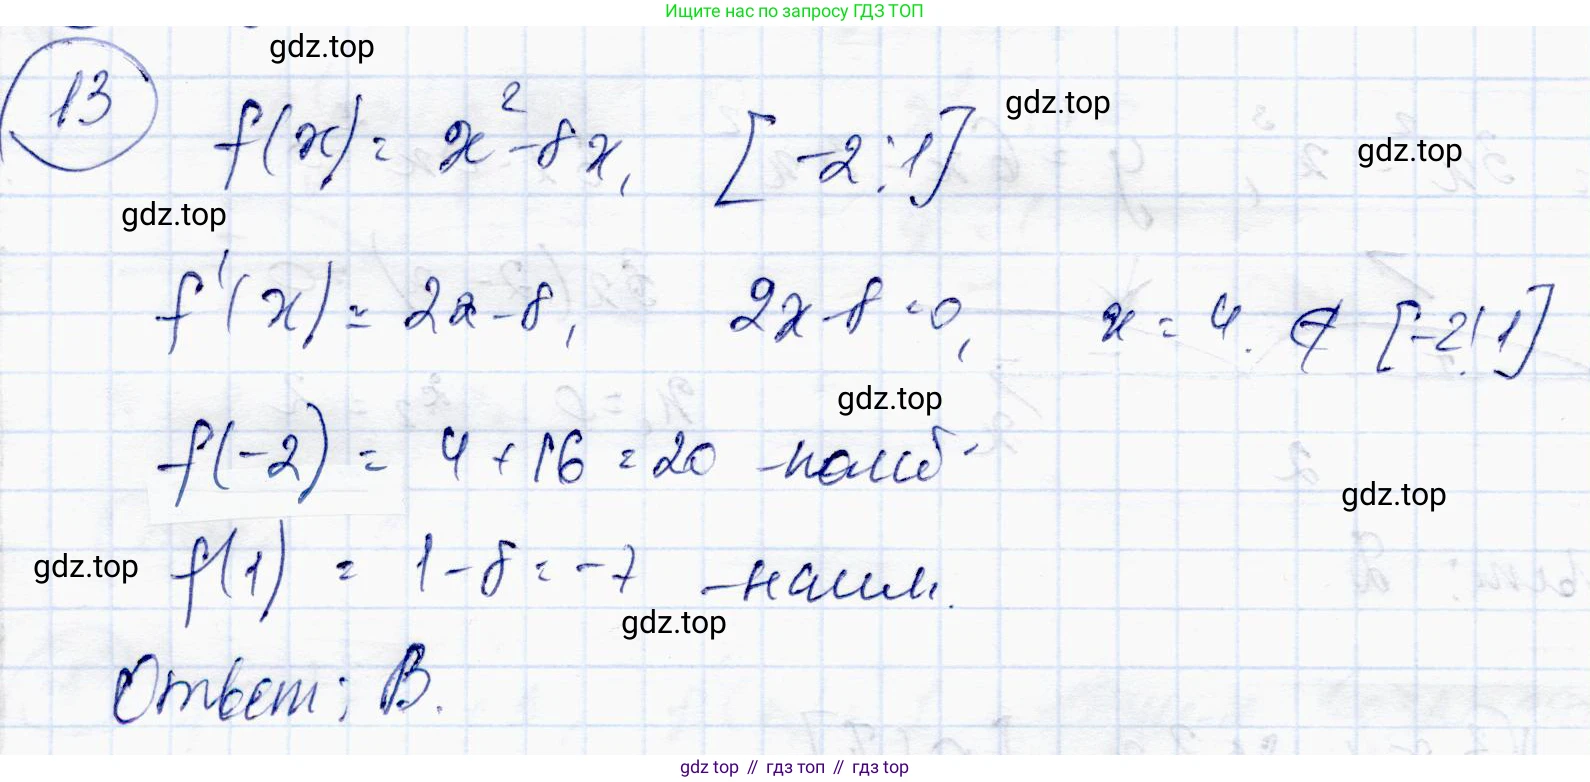 Ищите нас по запросу ГДЗ ТОП
gdz.top
13
f(x) = x² - 8x, [-2; 1]
gdz.top
gdz.top
gdz.top
f'(x) = 2x - 8, 2x - 8 = 0, x = 4. ∉ [-2; 1]
gdz.top
f(-2) = 4 + 16 = 20 - наиб.
gdz.top
f(1) = 1 - 8 = -7 - наим.
gdz.top
gdz.top
Ответ: В.
gdz.top // гдз топ // гдз top